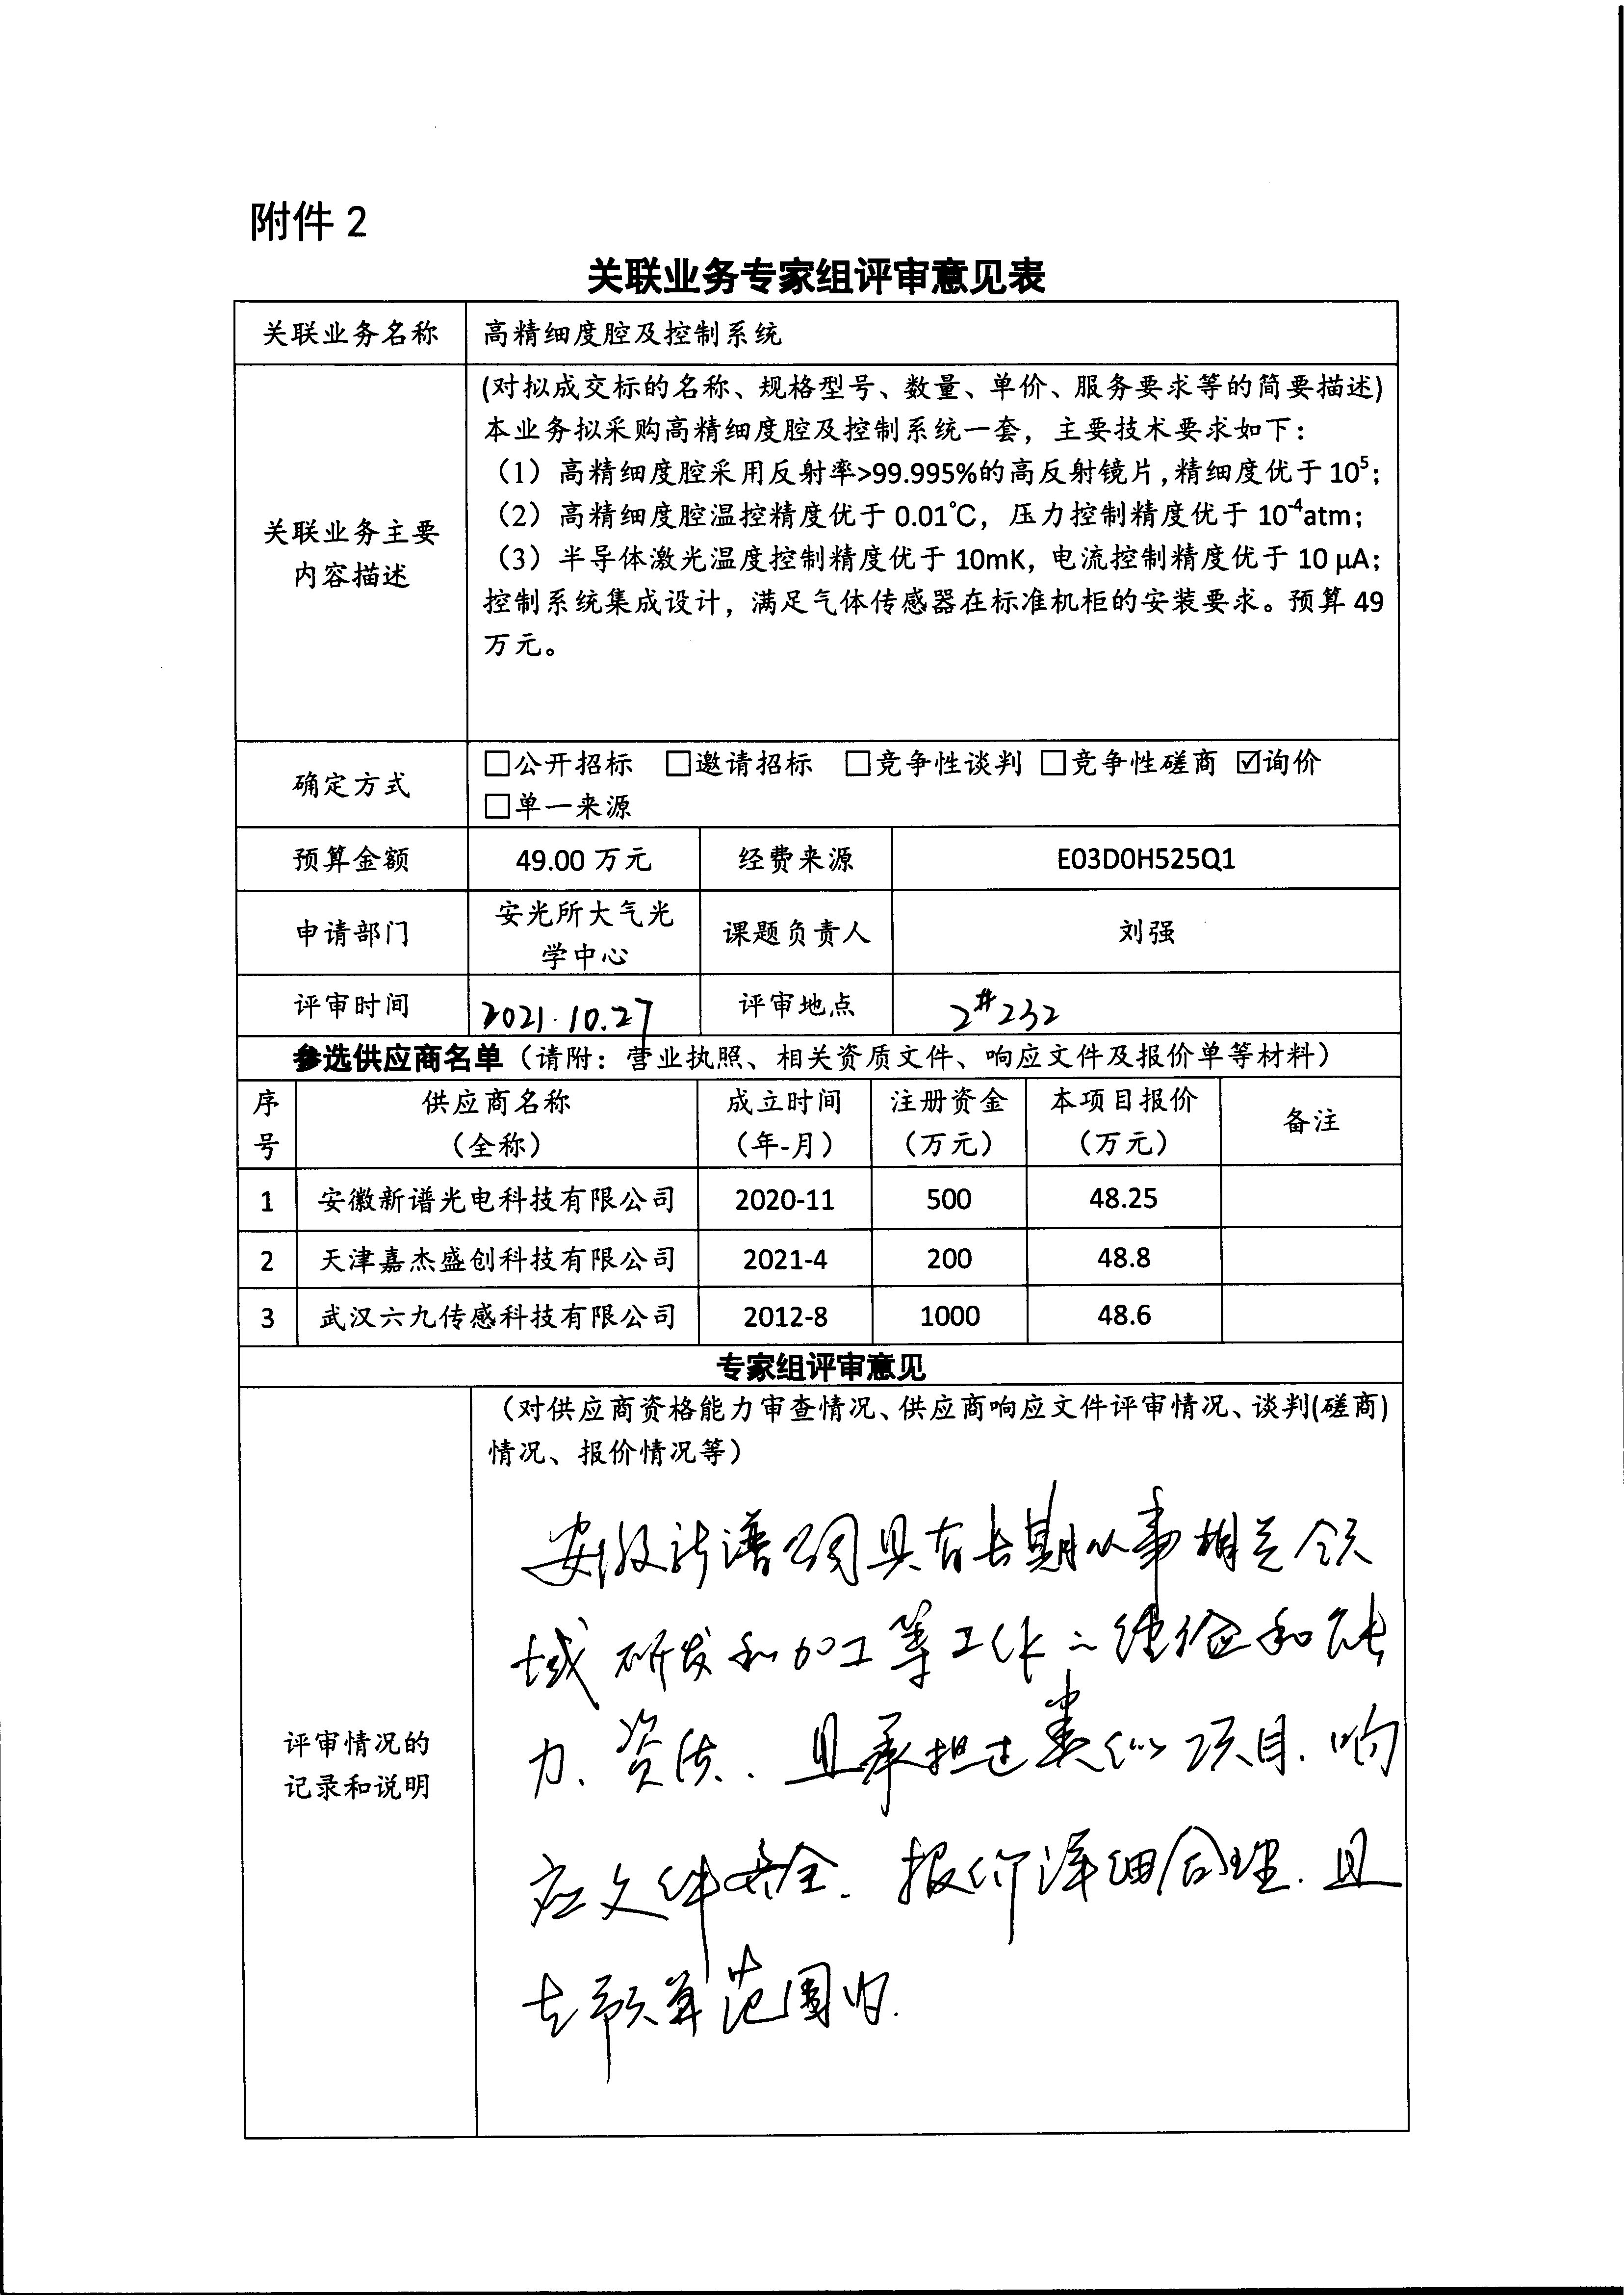 附件 2
关联业务专家组评审意见表
关联业务名称
高精细度腔及控制系统
关联业务主要
内容描述
(对拟成交标的名称、规格型号、数量、单价、服务要求等的简要描述)
本业务拟采购高精细度腔及控制系统一套，主要技术要求如下：
（1）高精细度腔采用反射率>99.995%的高反射镜片，精细度优于 10⁵；
（2）高精细度腔温控精度优于 0.01℃，压力控制精度优于 10⁻⁴atm；
（3）半导体激光温度控制精度优于 10mK，电流控制精度优于 10 μA；
控制系统集成设计，满足气体传感器在标准机柜的安装要求。预算 49
万元。
确定方式
□公开招标 □邀请招标 □竞争性谈判 □竞争性磋商 ☑询价
□单一来源
预算金额 49.00 万元 经费来源 E03D0H525Q1
申请部门 安光所大气光
学中心
课题负责人 刘强
评审时间 2021.10.27 评审地点 2#232
参选供应商名单（请附：营业执照、相关资质文件、响应文件及报价单等材料）
序
号
供应商名称
（全称）
成立时间
（年-月）
注册资金
（万元）
本项目报价
（万元）
备注
1 安徽新谱光电科技有限公司 2020-11 500 48.25
2 天津嘉杰盛创科技有限公司 2021-4 200 48.8
3 武汉六九传感科技有限公司 2012-8 1000 48.6
专家组评审意见
评审情况的
记录和说明
（对供应商资格能力审查情况、供应商响应文件评审情况、谈判(磋商)
情况、报价情况等）
安徽新谱公司具有长期从事相关领
域研发和加工等工作的经验和能
力、资质、且承担过类似项目.响
应文件齐全.报价详细合理.且
在预算范围内.